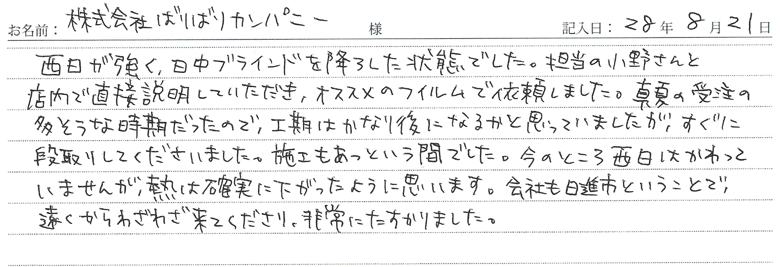 お名前： 株式会社ばりばりカンパニー 様 記入日： 28年 8月 21日
西日が強く、日中ブラインドを降ろした状態でした。担当の小野さんと
店内で直接説明していただき、オススメのフイルムで依頼しました。真夏の受注の
多そうな時期だったので、工期はかなり後になるかと思っていましたが、すぐに
段取りしてくださいました。施工もあっという間でした。今のところ西日はかわって
いませんが、熱は確実に下がったように思います。会社も日進市ということで、
遠くからわざわざ来てくださり、非常にたすかりました。